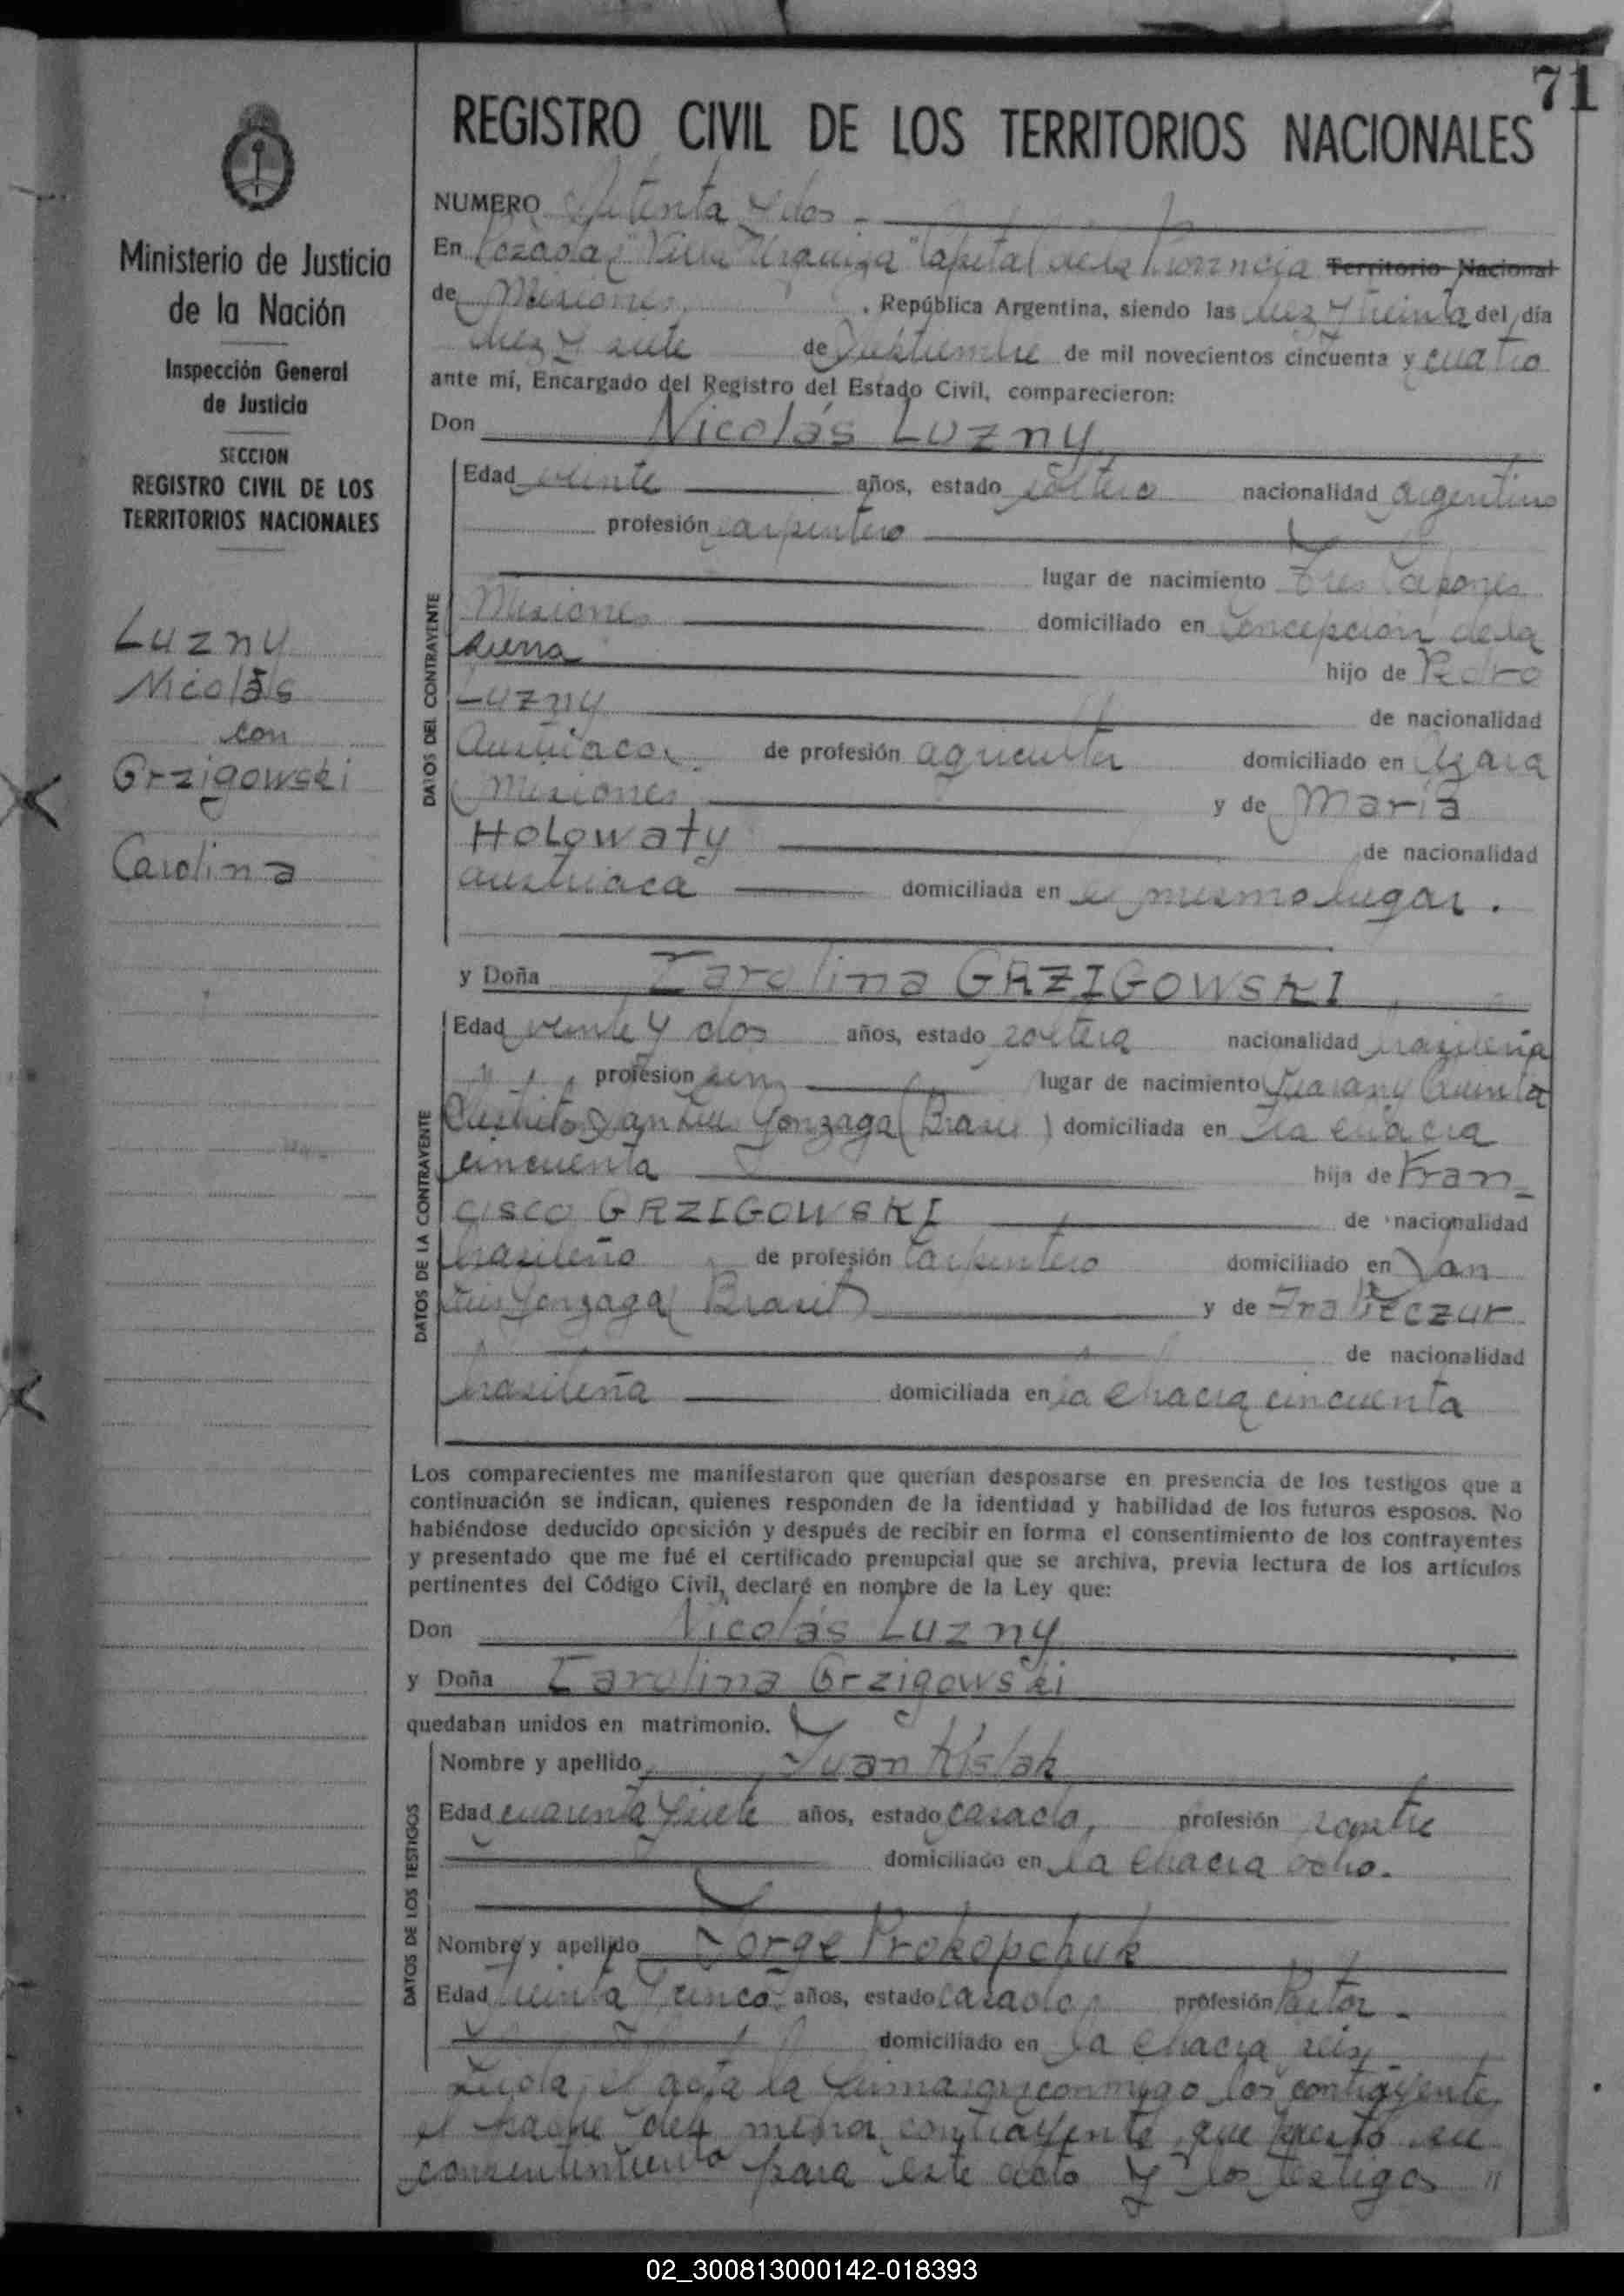 71
REGISTRO CIVIL DE LOS TERRITORIOS NACIONALES
Ministerio de Justicia
de la Nación
Inspección General
de Justicia
SECCION
REGISTRO CIVIL DE LOS
TERRITORIOS NACIONALES
Luzny
Nicolás
con
Grzigowski
Carolina
NUMERO Setenta y dos
En Pozadas "Villa Urquiza" Capital de la Provincia Territorio Nacional
de Misiones, República Argentina, siendo las diez y treinta del día
diez y siete de Septiembre de mil novecientos cincuenta y cuatro
ante mí, Encargado del Registro del Estado Civil, comparecieron:
Don Nicolás Luzny
Edad veinte años, estado soltero nacionalidad argentino
profesión carpintero
lugar de nacimiento Tres Capones
Misiones domiciliado en Concepción de la
Sierra hijo de Pedro
Luzny de nacionalidad
Austriaco, de profesión agricultor domiciliado en Azara
Misiones y de María
Holowaty de nacionalidad
austriaca domiciliada en el mismo lugar.
DATOS DEL CONTRAYENTE
y Doña Carolina GRZIGOWSKI
Edad veinte y dos años, estado soltera nacionalidad brasileña
profesion sin lugar de nacimiento Guarany Quinta
Distrito San Luis Gonzaga (Brasil) domiciliada en la chacra
cincuenta hija de Fran_
cisco GRZIGOWSKI de nacionalidad
brasileño de profesión Carpintero domiciliado en San
Luis Gonzaga (Brasil) y de Ana
de nacionalidad
brasileña domiciliada en la chacra cincuenta
DATOS DE LA CONTRAYENTE
Los comparecientes me manifestaron que querían desposarse en presencia de los testigos que a
continuación se indican, quienes responden de la identidad y habilidad de los futuros esposos. No
habiéndose deducido oposición y después de recibir en forma el consentimiento de los contrayentes
y presentado que me fué el certificado prenupcial que se archiva, previa lectura de los artículos
pertinentes del Código Civil, declaré en nombre de la Ley que:
Don Nicolás Luzny
y Doña Carolina Grzigowski
quedaban unidos en matrimonio.
Nombre y apellido Juan Kislak
Edad cuarenta y siete años, estado casado, profesión sastre
domiciliado en la chacra ocho.
Nombre y apellido Jorge Prokopchuk
Edad treinta y cinco años, estado casado, profesión Pastor
domiciliado en la chacra seis
DATOS DE LOS TESTIGOS
Leída el acta la firman conmigo los contrayentes
el padre del menor contrayente que presto su
consentimiento para este acto y los testigos "
02_300813000142-018393